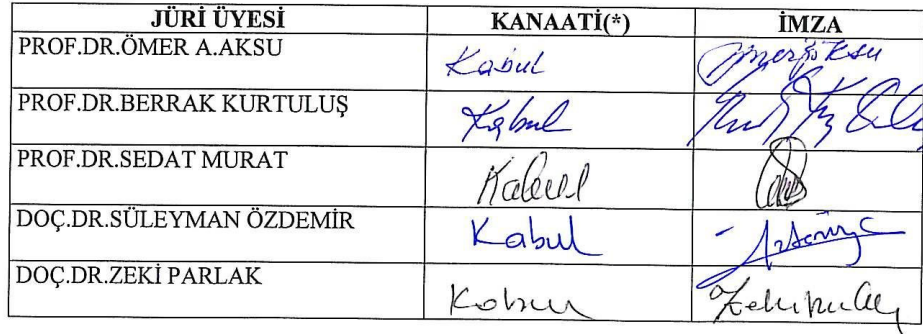 JÜRİ ÜYESİ KANAATİ(*) İMZA
PROF.DR.ÖMER A.AKSU Kabul
PROF.DR.BERRAK KURTULUŞ Kabul
PROF.DR.SEDAT MURAT Kabul
DOÇ.DR.SÜLEYMAN ÖZDEMİR Kabul
DOÇ.DR.ZEKİ PARLAK Kabul